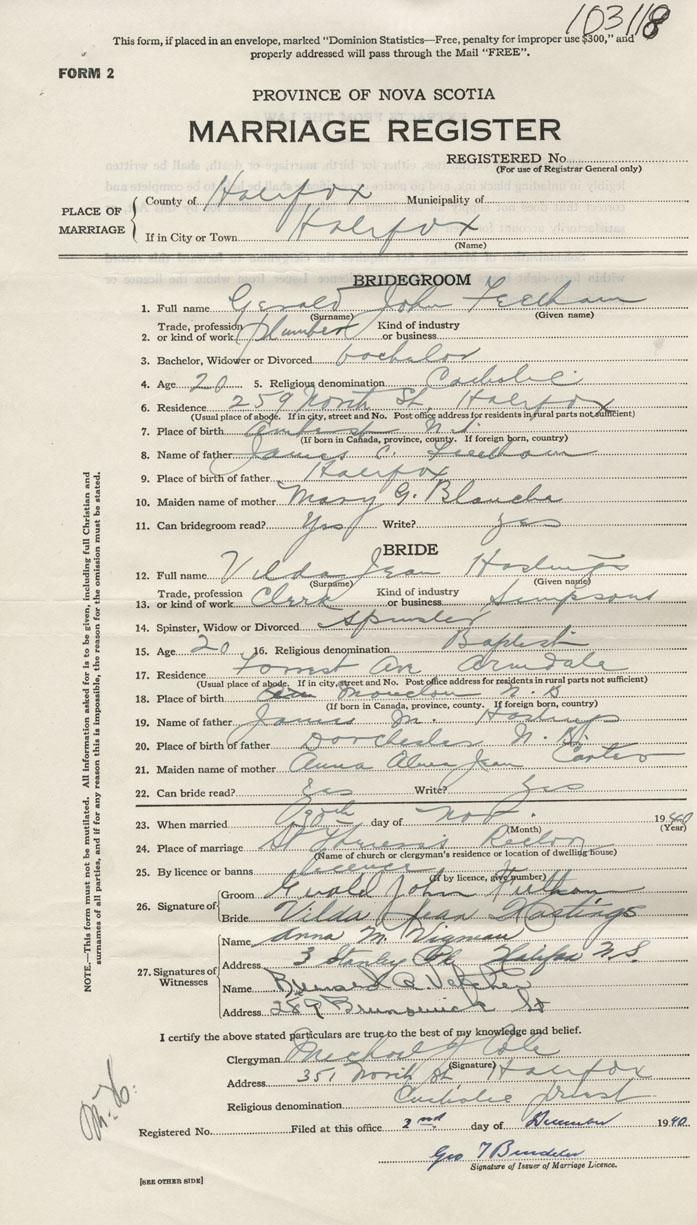 103118
This form, if placed in an envelope, marked "Dominion Statistics—Free, penalty for improper use $300," and
properly addressed will pass through the Mail "FREE".
FORM 2
PROVINCE OF NOVA SCOTIA
MARRIAGE REGISTER
REGISTERED No.
(For use of Registrar General only)
PLACE OF MARRIAGE
County of Halifax Municipality of
If in City or Town Halifax
(Name)
BRIDEGROOM
1. Full name Gerald John Feetham
(Surname) (Given name)
2. Trade, profession or kind of work Plumber Kind of industry or business
3. Bachelor, Widower or Divorced bachelor
4. Age 20 5. Religious denomination Catholic
6. Residence 259 North St. Halifax
(Usual place of abode. If in city, street and No. Post office address for residents in rural parts not sufficient)
7. Place of birth Amherst N.S.
(If born in Canada, province, county. If foreign born, country)
8. Name of father James C. Feetham
9. Place of birth of father Halifax
10. Maiden name of mother Mary G. Blanche
11. Can bridegroom read? Yes Write? yes
BRIDE
12. Full name Vilda Jean Hastings
(Surname) (Given name)
13. Trade, profession or kind of work Clerk Kind of industry or business Simpsons
14. Spinster, Widow or Divorced Spinster
15. Age 20 16. Religious denomination Baptist
17. Residence Forrest Ave Armdale
(Usual place of abode. If in city, street and No. Post office address for residents in rural parts not sufficient)
18. Place of birth Moncton N.B
(If born in Canada, province, county. If foreign born, country)
19. Name of father James M. Hastings
20. Place of birth of father Dorchester N.B.
21. Maiden name of mother Anna Jean Carter
22. Can bride read? Yes Write? Yes
23. When married day of Nov. 1940
(Month) (Year)
24. Place of marriage St Theresa's Rectory
(Name of church or clergyman's residence or location of dwelling house)
25. By licence or banns licence
(If by licence, give number)
26. Signature of
Groom Gerald John Feetham
Bride Vilda Jean Hastings
27. Signatures of Witnesses
Name Anna M.
Address 3 Stanley Pl. Halifax N.S.
Name Bernard
Address 289 Brunswick St
I certify the above stated particulars are true to the best of my knowledge and belief.
Clergyman Michael J Cole
(Signature)
Address 351 North St Halifax
Religious denomination Catholic priest
Registered No. Filed at this office 2nd day of December 1940.
Geo T
Signature of Issuer of Marriage Licence.
[SEE OTHER SIDE]
NOTE.—This form must not be mutilated. All Information asked for is to be given, including full Christian and
surnames of all parties, and if for any reason this is impossible, the reason for the omission must be stated.